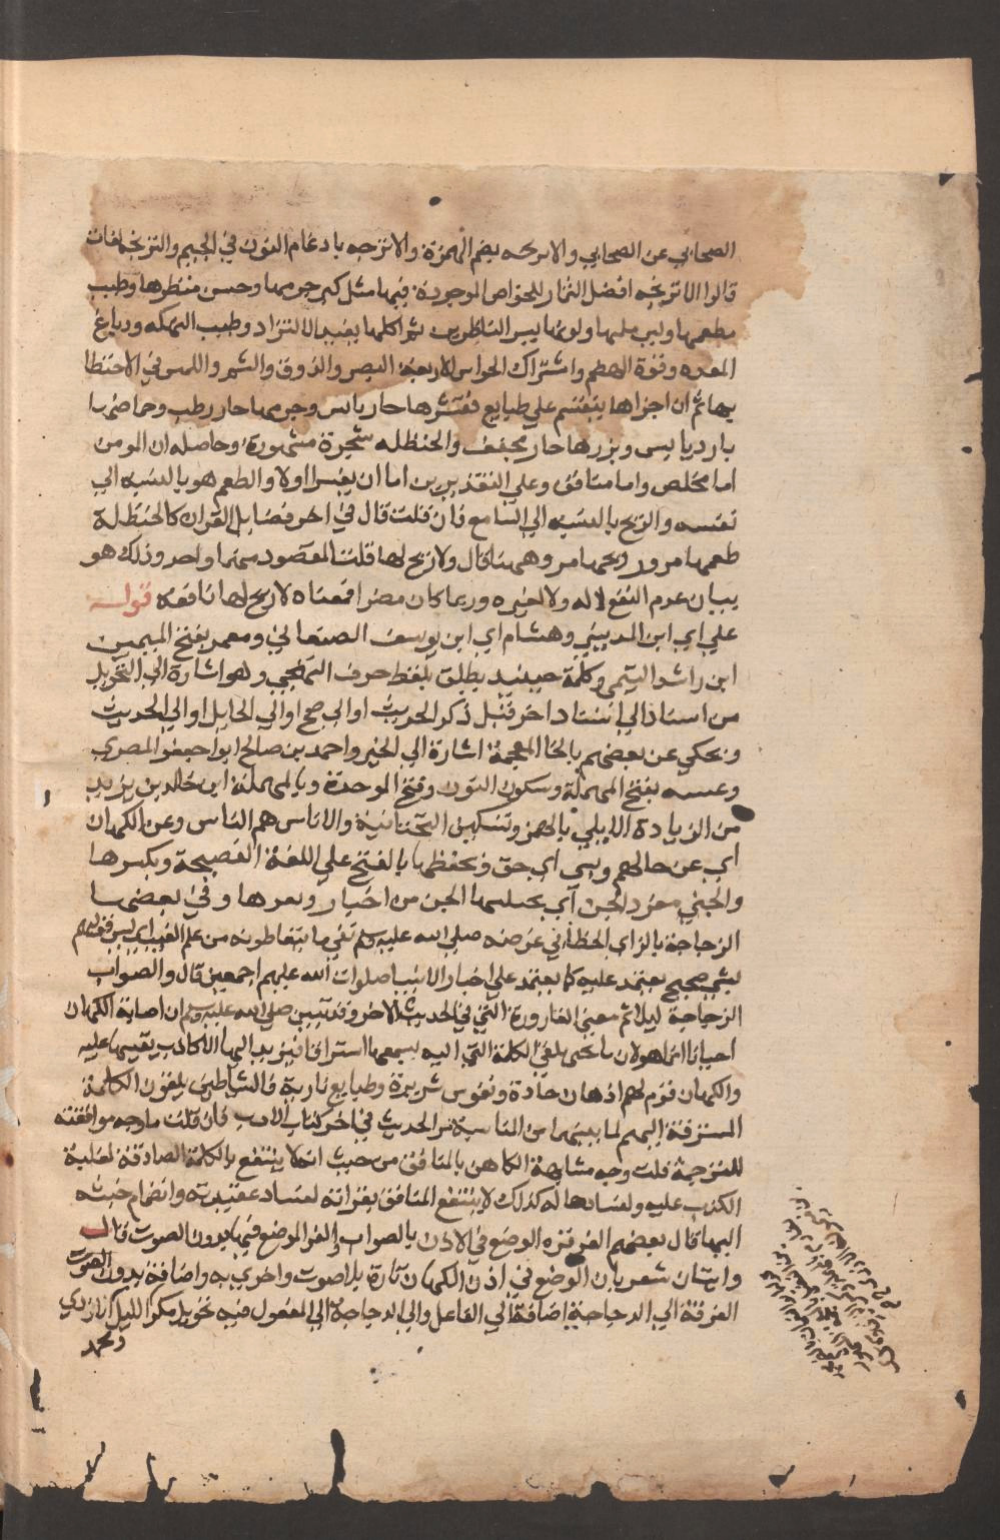 الصحابي عن الصحابي والاترجه بضم الهمزة والاترجه بادغام النون في الجيم والترنج لغات
قالوا الاترجه افضل الثمار للخواص الموجودة فيها مثل كبر جرمها وحسن منظرها وطيب
مطعمها ولين ملمسها ولونها يسر الناظرين ثم اكلها يفيد الالتذاذ وطيب النكهه ودباغ
المعده وقوة الهضم واشتراك الحواس الاربعة البصر والذوق والشم واللمس في الاحتظا
بها ثم ان اجزاها ينقسم علي طبايع فقشرها حار يابس وجرمها حار رطب وحماضها
بارد يابس وبزرها حار مجفف والحنظله شجرة مشهورة وحاصله ان المومن
اما مخلص واما منافق وعلي التقديرين اما ان يقرا او لا والطعم هو بالنسبه الي
نفسه والريح بالنسبه الي السامع فان قلت قال في اخر فضايل القران كالحنظلة
طعمها مر وريحها مر وههنا قال ولا ريح لها قلت المقصود منهما واحد وذلك هو
بيان عدم النفع لا له ولا لغيره وربما كان مضرا فمعناه لا ريح لها نافعه قوله
علي اي ابن المديني وهشام اي ابن يوسف الصنعاني ومعمر بفتح الميمين
ابن راشد التيمي وكلمة حينيد يطلق بلفظ حرف التهجي وهو اشارة الي التحويل
من اسناد الي اسناد اخر قبل ذكر الحديث او الي صح او الي الحايل او الي الحديث
ويحكي عن بعضهم بالخا المعجمة اشارة الي الخبر واحمد بن صالح ابو جعفر المصري
وعنبسه بفتح المهملة وسكون النون وفتح الموحدة وبالمهملة ابن خالد بن يزيد
من الزيادة الايلي بالهمز وتسكين التحتانية والاناس هم الناس وعن الكهان
اي عن حالهم وبشي اي بحق ويحفظها بالفتح علي اللغة الفصيحة وبكسرها
والجني مفرد الجن اي يختلسها الجن من اخبار وفي بعضها
الزجاجة بالزاي الخطابي غرضه صلي الله عليه وسلم نفي ما يتعاطونه من علم الغيب اي ليس قولهم
بشي صحيح يعتمد عليه كما يعتمد علي اخبار الانبيا صلوات الله عليهم اجمعين قال والصواب
الزجاجة ليلائم معني القارورة التي في الحديث الاخر وقد تبين صلي الله عليه وسلم ان اصابة الكهان
احيانا انما هو لان الجني يلقي الكلمة التي اليه يسمعها استراقا فيزيد اليها الاكاذب يقيسها عليه
والكهان قوم لهم اذهان حادة ونفوس شريرة وطبايع نارية فالشياطين يلقون الكلمة
المسترقة اليهم لما بينهما من المناسبة مر الحديث في اخر كتاب الادب فان قلت ما وجه موافقته
للترجمة قلت وجه مشابهة الكاهن بالمنافق من حيث انه لا ينتفع بالكلمة الصادقة لغلبة
الكذب عليه ولفساد حاله كذلك لا ينتفع المنافق بقراته لفساد عقيدته وانضمام خبثه
اليها قال بعضهم القرقره الوضع في الاذن بالصواب والقر الوضع فيها بدون الصوت قال
بان الوضع في اذن الكهان تارة بلا صوت واخري به واضافة بدون الصوت
القرقة الي الدجاجة اضافة الي الفاعل والي الدجاجة الي المفعول فيه نحو بل مكر الليل
ومحمد